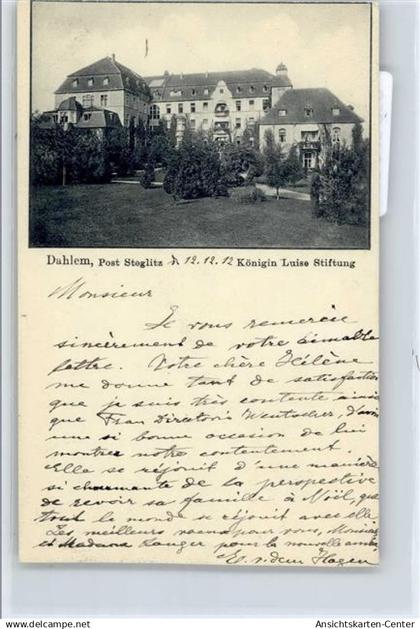 Dahlem, Post Steglitz 12.12.12 Königin Luise Stiftung
Monsieur
Je vous remercie
sincèrement de votre aimable
lettre. Votre chère Hélène
me donne tant de satisfaction
que je suis très contente ainsi
que Frau Directorin d'avoir
une si bonne occasion de lui
montrer notre contentement.
Elle se réjouit d'une manière
si charmante de la perspective
de revoir sa famille à Noël, que
tout le monde se réjouit avec elle
Les meilleurs voeux pour vous, Monsieur
et Madame Langer pour la nouvelle année,
E. v. dem Hagen
www.Ansichtskarten-Center.de